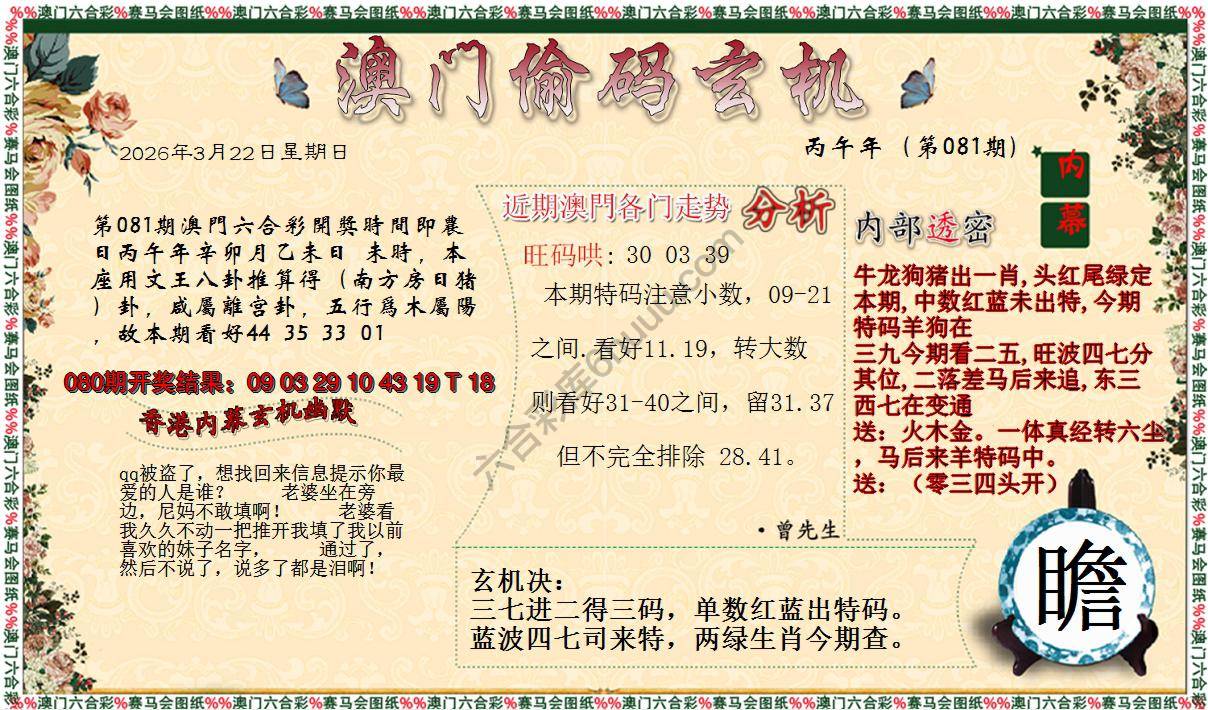 %%澳门六合彩%赛马会图纸%%澳门六合彩%赛马会图纸%%澳门六合彩%赛马会图纸%%澳门六合彩%赛马会图纸%%澳门六合彩%赛马会图纸%%澳门六合彩%赛马会图纸%%
澳门偷码玄机
2026年3月22日星期日
丙午年（第081期）
内幕
第081期澳門六合彩開獎時間即農
日丙午年辛卯月乙未日 未時，本
座用文王八卦推算得（南方房日猪
）卦，咸屬離宫卦，五行爲木屬陽
，故本期看好44 35 33 01
080期开奖结果：09 03 29 10 43 19 T 18
香港内幕玄机幽默
qq被盗了，想找回来信息提示你最
爱的人是谁？ 老婆坐在旁
边，尼妈不敢填啊！ 老婆看
我久久不动一把推开我填了我以前
喜欢的妹子名字， 通过了，
然后不说了，说多了都是泪啊！
近期澳門各门走势 分析
旺码哄: 30 03 39
本期特码注意小数，09-21
之间.看好11.19，转大数
则看好31-40之间，留31.37
但不完全排除 28.41。
·曾先生
内部透密
牛龙狗猪出一肖,头红尾绿定
本期,中数红蓝未出特,今期
特码羊狗在
三九今期看二五,旺波四七分
其位,二落差马后来追,东三
西七在变通
送：火木金。一体真经转六尘
，马后来羊特码中。
送：（零三四头开）
玄机决：
三七进二得三码，单数红蓝出特码。
蓝波四七司来特，两绿生肖今期查。
瞻